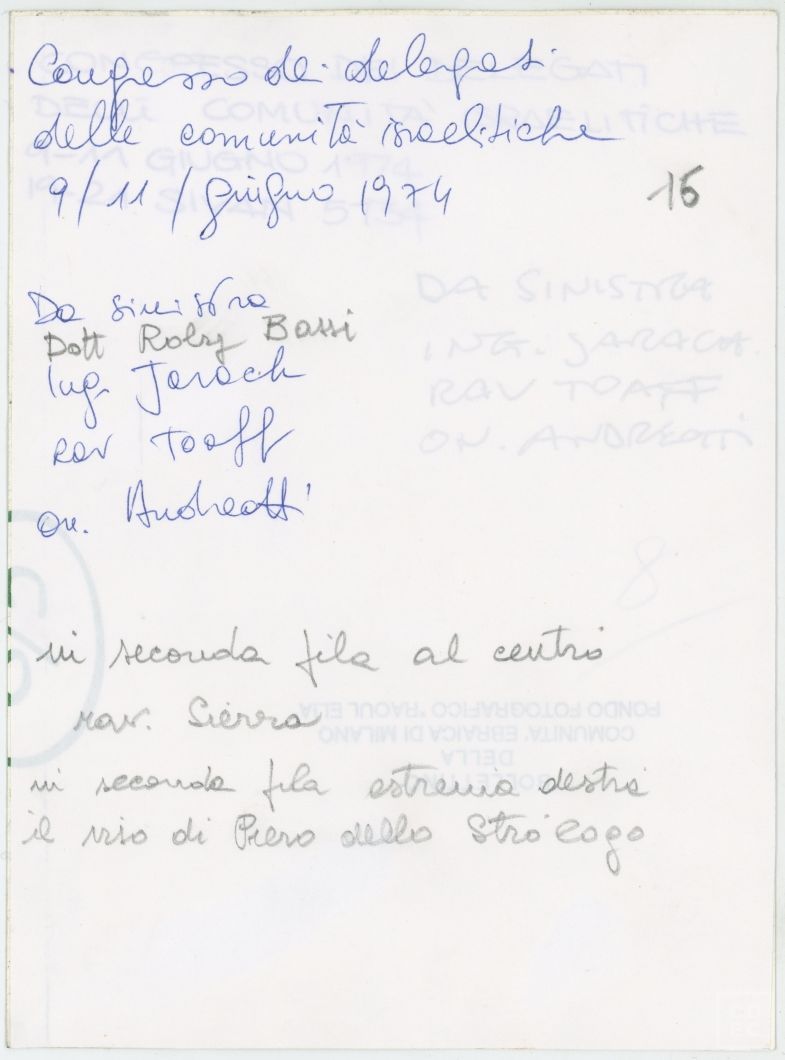 Congresso dei delegati
delle comunità israelitiche
9/11/giugno 1974
16
Da sinistra
Dott Roby Bassi
Ing. Jarach
rav Toaff
on. Andreotti
in seconda fila al centro
rav. Sierra
in seconda fila estrema destra
il viso di Piero dello Strologo
CONGRESSO DEI DELEGATI
DELLE COMUNITÀ ISRAELITICHE
9-11 GIUGNO 1974
19-21 SIVAN 5734
DA SINISTRA
ING. JARACH
RAV TOAFF
ON. ANDREOTTI
8
BOLLETTINO
DELLA
COMUNITA' EBRAICA DI MILANO
FONDO FOTOGRAFICO "RAOUL ELIA